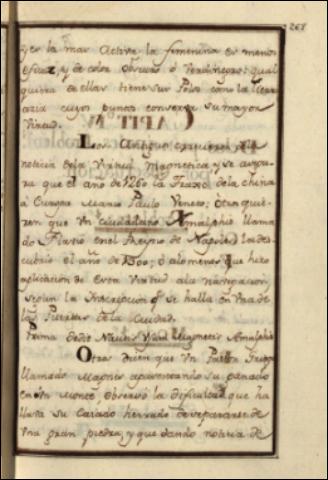 267
y es la mas Activa: la femenina es menos
eficaz, y de color obscuro ó Verdinegro: qual
quiera de ellas tiene sus Polos como la Terra
cuyos puntos conserva su mayor
Virtud.
Los Antiguos carecieron de la
noticia de la Virtud Magnetica, y se asegu
ra que el año de 1260 la Traxo de la china
a Europa Marco Paulo Veneto; Otros quie
ren que Un Ciudadano Amalphio llama
do Flavio en el Reyno de Napoles la des
cubrio el año de 1300; ó alomenos que hizo
aplicacion de Esta Virtud ala navegacion,
segun la Inscripcion q.e se halla en Una de
las Puertas de la Ciudad.
Prima dedit Nautis Usum Magnetis Amalphis
Otros dicen que Un Pastor Griego
llamado Magnes apacentando su ganado
en Un Monte, observó la dificultad que ha
llava su Caiado herrado de separarse de
Una gran piedra; y que dando noticia de